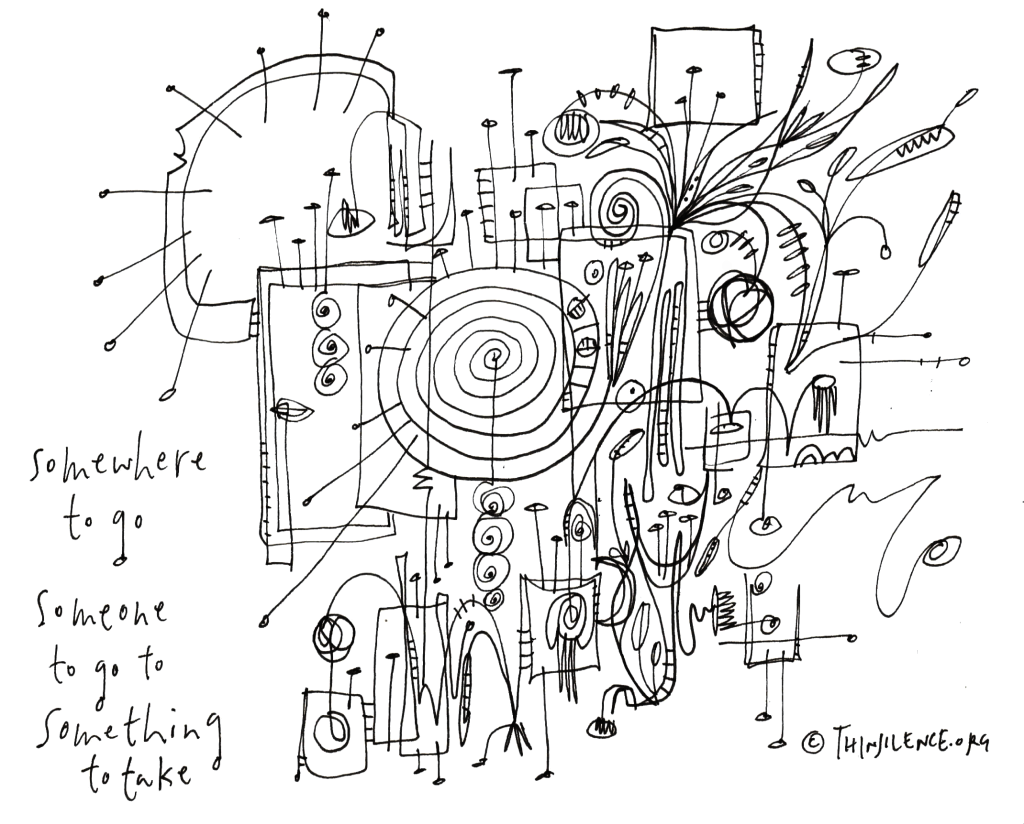 somewhere
to go
someone
to go to
something
to take
© THINSILENCE.ORG